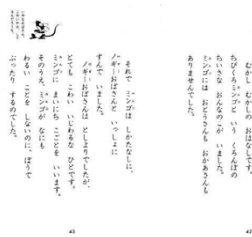 むかし むかしの おはなしです。
ちびくろミンゴと いう くろんぼの
ちいさな おんなのこが いました。
ミンゴには おとうさんも おかあさんも
ありませんでした。
42
それで ミンゴは しかたなしに、
ノギーおばさんと いっしょに
すんで いました。
ノギーおばさんは としよりでしたが、
とても こわい いじわるな ひとです。
ミンゴに まいにち こごとを いいます。
そのうえ、ミンゴが なにも
わるい ことを しないのに、ぼうで
ぶったり するのでした。
43